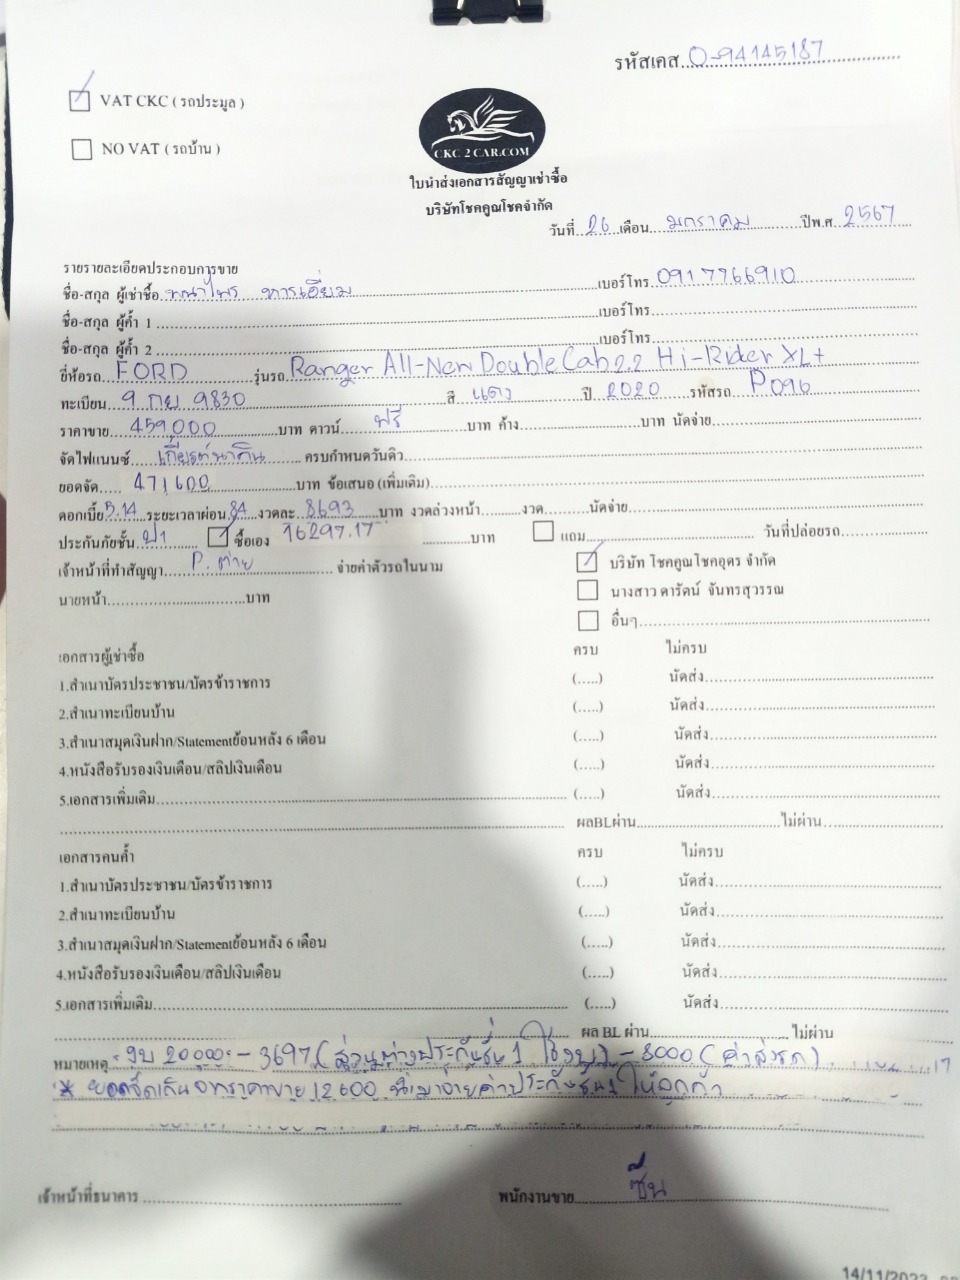 รหัสเคส...O-94145187
VAT CKC ( รถประมูล )
NO VAT ( รถบ้าน )
CKC 2 CAR.COM
ใบนำส่งเอกสารสัญญาเช่าซื้อ
บริษัทโชคคูณโชคจำกัด
วันที่...26...เดือน...มกราคม...ปีพ.ศ...2567
รายรายละเอียดประกอบการขาย
ชื่อ-สกุล ผู้เช่าซื้อ...เบอร์โทร...0917766910
ชื่อ-สกุล ผู้ค้ำ 1...เบอร์โทร...
ชื่อ-สกุล ผู้ค้ำ 2...เบอร์โทร...
ยี่ห้อรถ...FORD...รุ่นรถ...Ranger All-New Double Cab 2.2 Hi-Rider XL+
ทะเบียน...9 กย 9830...สี...แดง...ปี...2020...รหัสรถ...P096
ราคาขาย...459000...บาท ดาวน์...ฟรี...บาท ค้าง...บาท นัดจ่าย...
จัดไฟแนนซ์...เกียรตินาคิน...ครบกำหนดวันดิว...
ยอดจัด...471600...บาท ข้อเสนอ (เพิ่มเติม)...
ดอกเบี้ย...5.14...ระยะเวลาผ่อน...84...งวดละ...8693...บาท งวดล่วงหน้า...งวด...นัดจ่าย...
ประกันภัยชั้น...ป1...ซื้อเอง 16297.17...บาท แถม...วันที่ปล่อยรถ...
เจ้าหน้าที่ทำสัญญา...P.ต่าย...จ่ายค่าตัวรถในนาม บริษัท โชคคูณโชคอุดร จำกัด
นายหน้า...บาท นางสาว ดารัตน์ จันทรสุวรรณ
อื่นๆ...
เอกสารผู้เช่าซื้อ ครบ ไม่ครบ
1.สำเนาบัตรประชาชน/บัตรข้าราชการ (.....) นัดส่ง...
2.สำเนาทะเบียนบ้าน (.....) นัดส่ง...
3.สำเนาสมุดเงินฝาก/Statementย้อนหลัง 6 เดือน (.....) นัดส่ง...
4.หนังสือรับรองเงินเดือน/สลิปเงินเดือน (.....) นัดส่ง...
5.เอกสารเพิ่มเติม... (.....) นัดส่ง...
ผลBLผ่าน...ไม่ผ่าน...
เอกสารคนค้ำ ครบ ไม่ครบ
1.สำเนาบัตรประชาชน/บัตรข้าราชการ (.....) นัดส่ง...
2.สำเนาทะเบียนบ้าน (.....) นัดส่ง...
3.สำเนาสมุดเงินฝาก/Statementย้อนหลัง 6 เดือน (.....) นัดส่ง...
4.หนังสือรับรองเงินเดือน/สลิปเงินเดือน (.....) นัดส่ง...
5.เอกสารเพิ่มเติม... (.....) นัดส่ง...
ผล BL ผ่าน...ไม่ผ่าน
หมายเหตุ: งบ 20000.- - 3697 (ส่วนต่างประกันชั้น 1 ใช้งบ) - 8000 (ค่าส่งรถ)
* ยอดจัดเกินจากราคาขาย 12600 นี้เอาจ่ายค่าประกันชั้น 1 ให้ลูกค้า
เจ้าหน้าที่ธนาคาร... พนักงานขาย...ซีน
14/11/2023